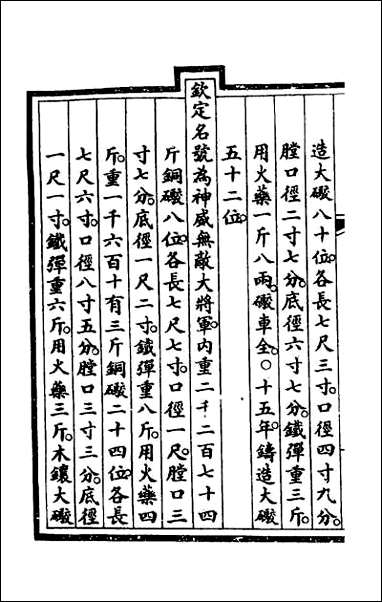 造大礮八十位。各長七尺三寸。口徑四寸九分。
膛口徑二寸七分。底徑六寸七分。鐵彈重三斤。
用火藥一斤八兩。礮車全。○十五年。鑄造大礮
五十二位。
欽定名號為神威無敵大將軍。內重二千二百七十四
斤銅礮八位。各長七尺七寸。口徑一尺。膛口三
寸七分。底徑一尺二寸。鐵彈重八斤。用火藥四
斤。重一千六百十有三斤銅礮二十四位。各長
七尺六寸。口徑八寸五分。膛口三寸三分。底徑
一尺一寸。鐵彈重六斤。用火藥三斤。木鑲大礮